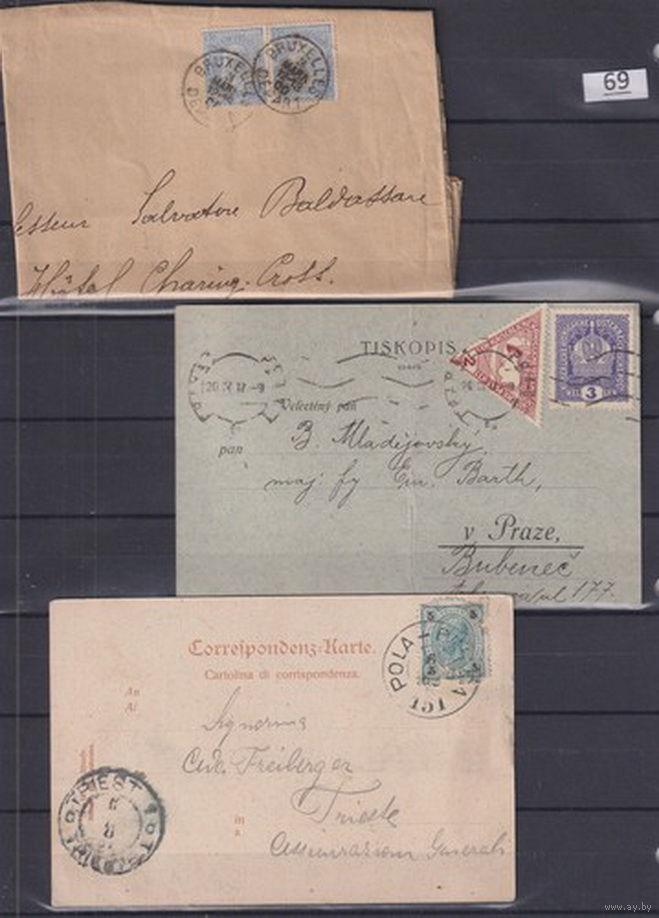 69
BRUXELLES
BRUXELLES
Salvatore Baldassare
Hôtel Charing-Cross.
TISKOPIS
2
3
Velectěný pán
pan
B. Mladějovský,
maj. fy Em. Barth,
v Praze,
Bubeneč
177.
Correspondenz-Karte.
Cartolina di corrispondenza.
An
Al
5 5
POLA 1
Signorina
Freiberger
in
a
Trieste
Assicurazioni Generali
TRIEST
ay.by